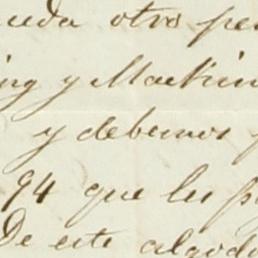 ueda otro pe
ing y Mackin
y debemos
94 que les p
De este algod